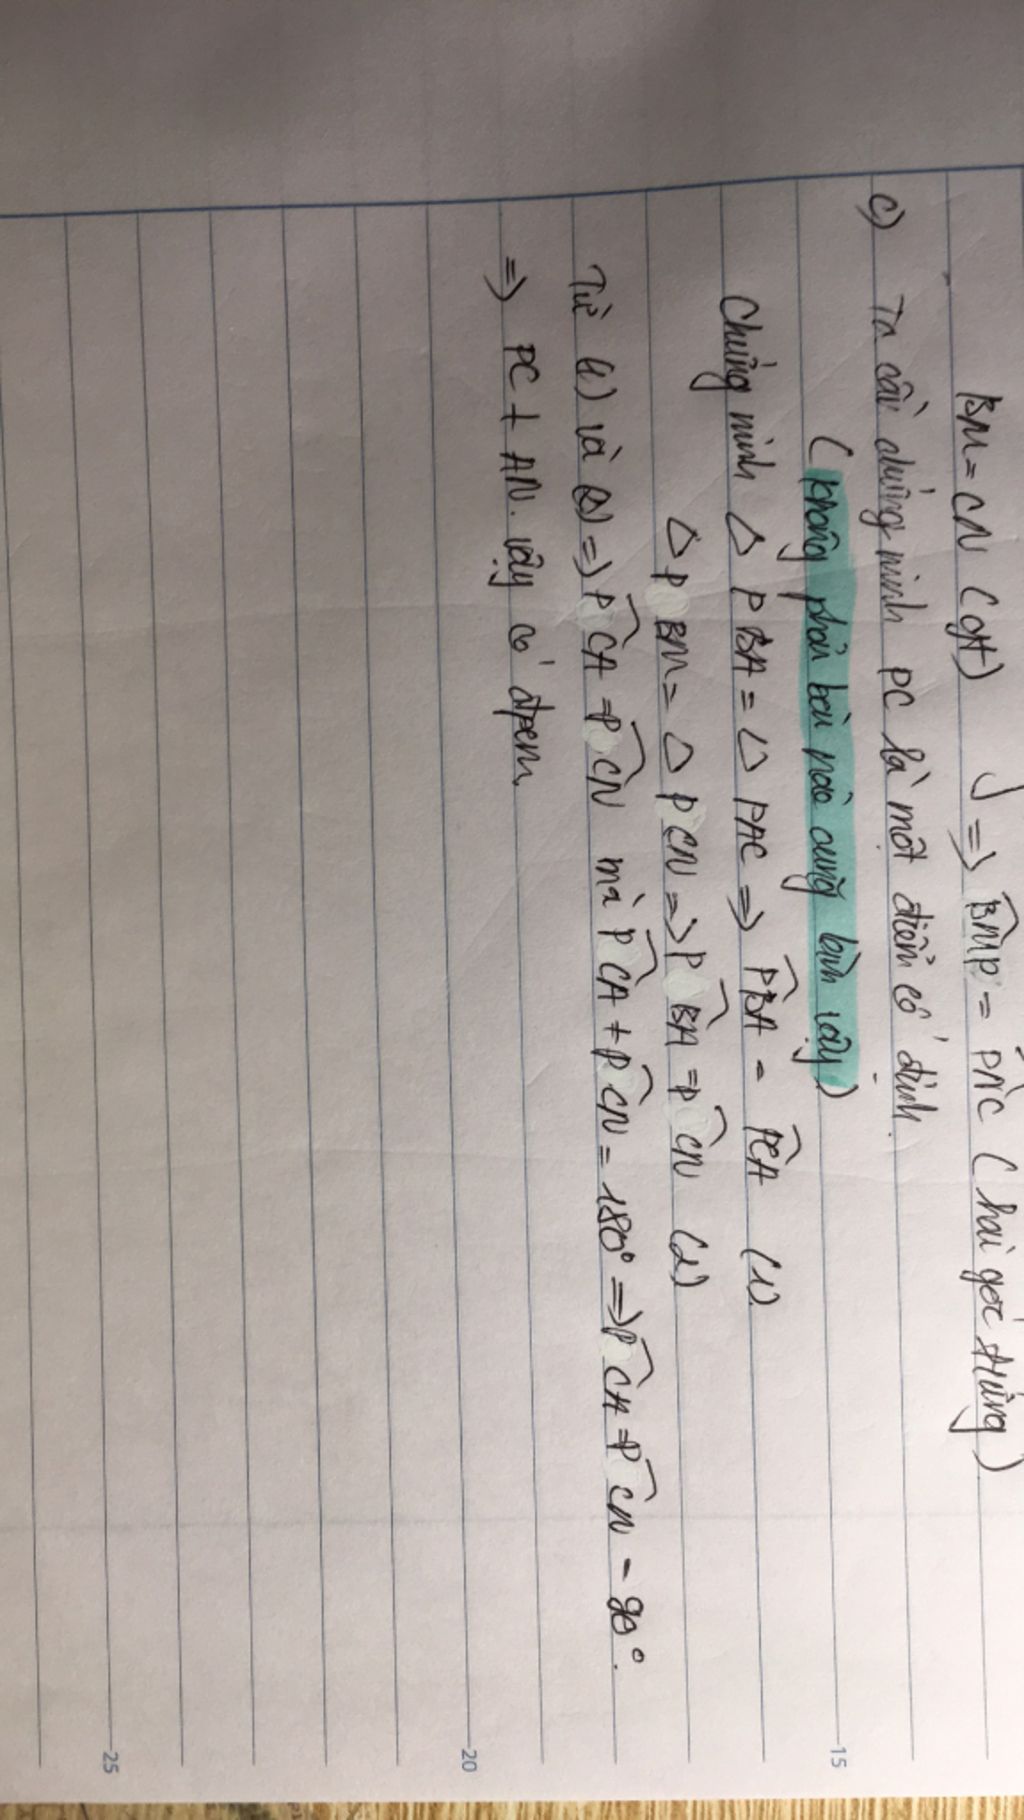 BM = CN (gt) } => BMP = PNC (hai góc tương)
c) Ta cần chứng minh PC là một điểm cố định.
(không phải bài nào cũng làm vậy)
Chứng minh Δ PBA = Δ PAC => PBA = PCA (1).
Δ PBM = Δ PCN => PBA = PCN (2)
Từ (1) và (2) => PCA = PCN mà PCA + PCN = 180° => PCA = PCN = 90°.
=> PC + AN. Vậy có đpcm
15
20
25